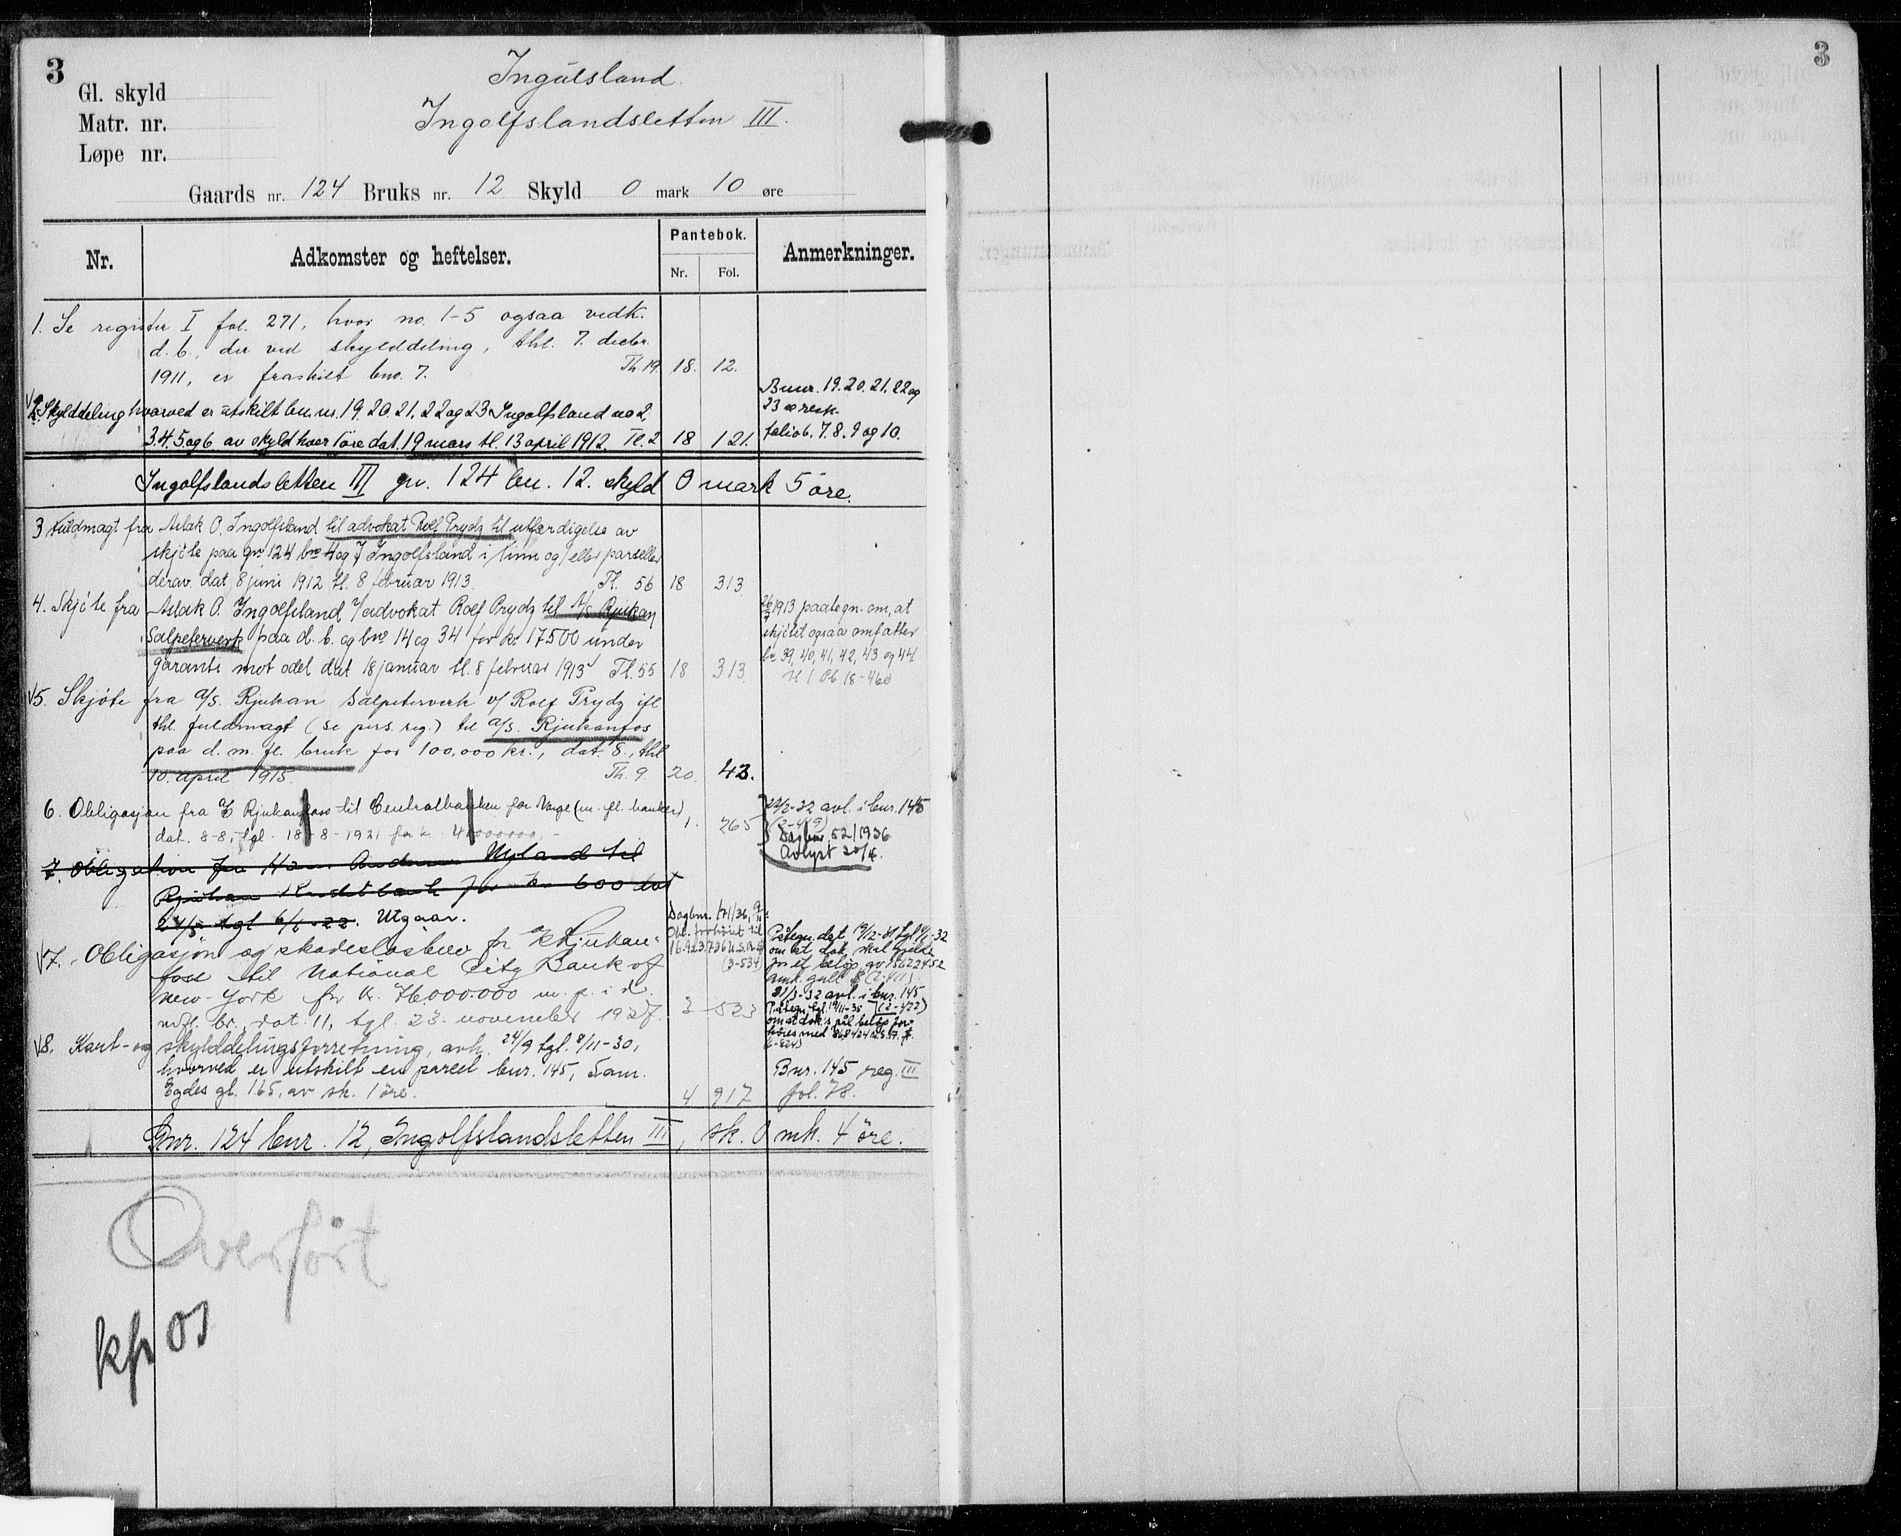 3
Ingulsland.
Ingolfslandsletten III.
Gl. skyld
Matr. nr.
Løpe nr.
Gaards nr. 124 Bruks nr. 12 Skyld 0 mark 10 øre
Nr. Adkomster og heftelser. Pantebok. Anmerkninger.
Nr. Fol.
1. Se register I fol. 271, hvor no. 1-5 ogsaa vedk.
d. b., der ved skylddeling, thl. 7. decbr.
1911, er fraskilt bno. 7. Th 19. 18. 12.
2. Skylddeling hvorved er utskilt bn. nr. 19. 20. 21. 22 og 23 Ingolfsland no 2.
3. 4. 5 og 6. av skyld hver 1 øre dat. 19 mars tl. 13 april 1912. Tl. 2 18 121.
Bnnr. 19. 20. 21. 22 og
23 se resk.
folio 6. 7. 8. 9 og 10.
Ingolfslandsletten III gn. 124 bn. 12. skyld 0 mark 5 øre.
3 Fuldmagt fra Aslak O. Ingolfsland til advokat Rolf Prydz til utfærdigelse av
skjøte paa gnr 124 bno 4 og 7 Ingolfsland i Tinn og/eller parseller
derav dat 8 juni 1912 tl. 8 februar 1913. Tl. 56 18 313.
4. Skjøte fra Aslak O. Ingolfsland v/advokat Rolf Prydz til A/S Rjukan
Salpeterverk paa d. b. og bno 14 og 34 for kr 17500 under
garanti mot odel dat 18 januar tl. 8 februar 1913 Tl. 55 18 313.
1913 paategn. om, at
skjøtet ogsaa omfatter
bn 39, 40, 41, 42, 43 og 44
5. Skjøte fra a/s. Rjukan Salpeterverk v/ Rolf Prydz ifl
thl. fuldmagt (se pers. reg.) til a/s. Rjukanfos
paa d. m. fl. bruk for 100,000 kr., dat. 8., thl
10. april 1915. Th. 9. 20. 43.
6. Obligasjon fra Rjukanfoss til Centralbanken for Norge (m. fl. banker)
dat. 8-8, tgl. 18-8-1921 for kr. 1. 265
22/2-32 avl. i bnr. 145
Dagbnr. 52/1936
Avlyst
7. Obligation fra Andersen til
Rjukan Kreditbank for kr 600 dat
tgl 6/6-22. Utgaar.
7. Obligasjon og skadesløsbrev fr. Rjukan-
foss til National City Bank of
New-York for kr. 76.000.000 m. p. i d.
m. fl. br., dat. 11, tgl. 23. november 1927. 3 523
Påtegn. dat. tgl.
om at dok. skal gjelde
for et beløp av
31/3-32 avl. i bnr. 145
8. Kart- og skylddelingsforretning, avh. 24/9 tgl. 8/11-30,
hvorved er utskilt en parcel bnr. 145, Sam.
Eydes gt. 165, av sk. 1 øre. 4 917
Bnr. 145 reg. III
fol. 78.
Gnr. 124 bnr. 12, Ingolfslandsletten III, sk. 0 mk. 4 øre.
Overført
3